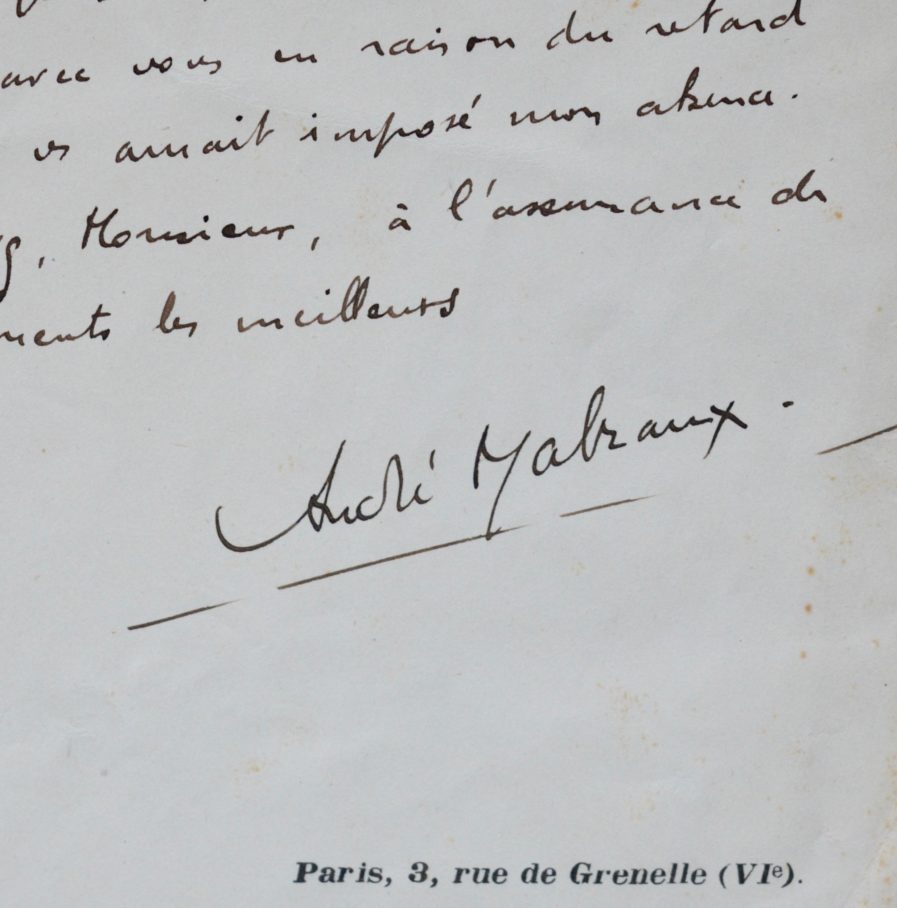 avec vous en raison du retard
vs aurait imposé mon absence.
, Monsieur, à l'assurance de
ments les meilleurs
André Malraux.
Paris, 3, rue de Grenelle (VIᵉ).